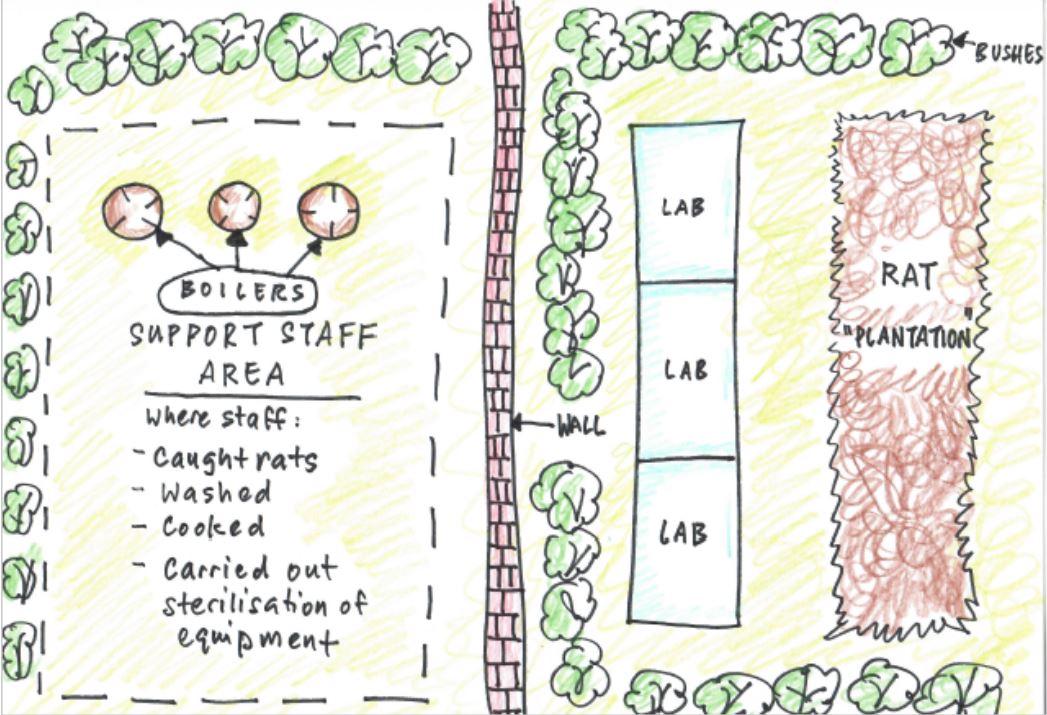 BOILERS
SUPPORT STAFF
AREA
Where staff:
- Caught rats
- Washed
- Cooked
- Carried out
sterilisation of
equipment
WALL
BUSHES
LAB
LAB
LAB
RAT
"PLANTATION"